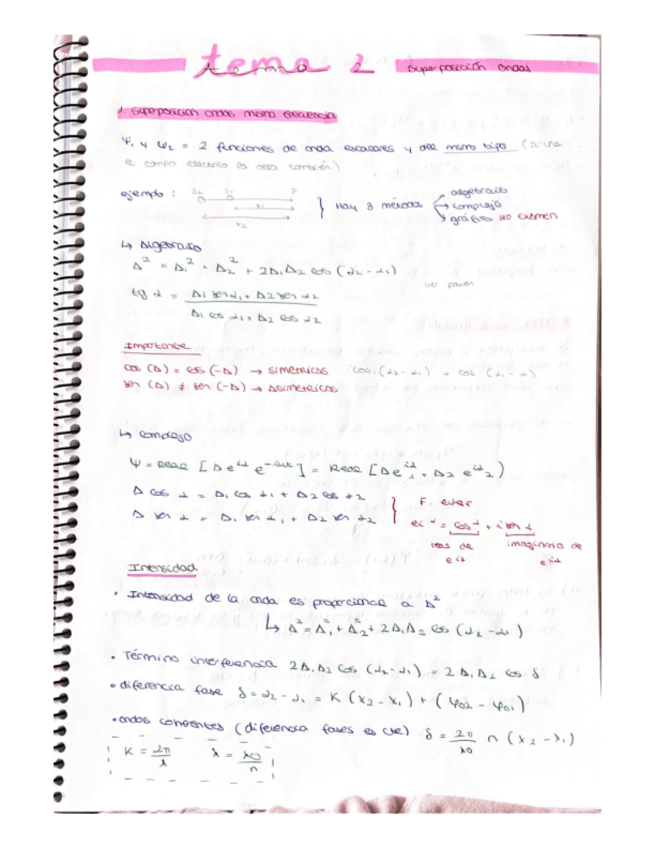 tema 2 superposición ondas
1. superposición ondas misma frecuencia
Ψ₁ y Ψ₂ = 2 funciones de onda escalares y del mismo tipo (si una
es campo eléctrico la otra también)
ejemplo : S₂ S₁ P x₁ x₂ } Hay 3 métodos → algebraico → complejo → gráfico NO EXAMEN
↳ Algebraico
A² = A₁² + A₂² + 2A₁A₂ cos (α₂ - α₁)
tg α = A₁ sen α₁ + A₂ sen α₂ / A₁ cos α₁ + A₂ cos α₂
Importante
cos (A) = cos (-A) → simétricos cos (α₂ - α₁) = cos (α₁ - α₂)
sen (A) ≠ sen (-A) → Asimétricos
↳ complejo
Ψ = Real [A e^iα e^-iωt] = Real [A e^iα₁ + A₂ e^iα₂)
A cos α = A₁ cos α₁ + A₂ cos α₂
A sen α = A₁ sen α₁ + A₂ sen α₂ } F. euler
e^iα = cos α + i sen α
real de e^iα imaginaria de e^iα
Intensidad
• Intensidad de la onda es proporcional a A²
↳ A² = A₁² + A₂² + 2A₁A₂ cos (α₂ - α₁)
• Término interferencia 2A₁A₂ cos (α₂ - α₁) = 2A₁A₂ cos δ
• diferencia fase δ = α₂ - α₁ = K (x₂ - x₁) + (φ₀₂ - φ₀₁)
• ondas coherentes (diferencia fases es cte) δ = 2π/λ₀ n (x₂ - x₁)
K = 2π/λ λ = λ₀/n